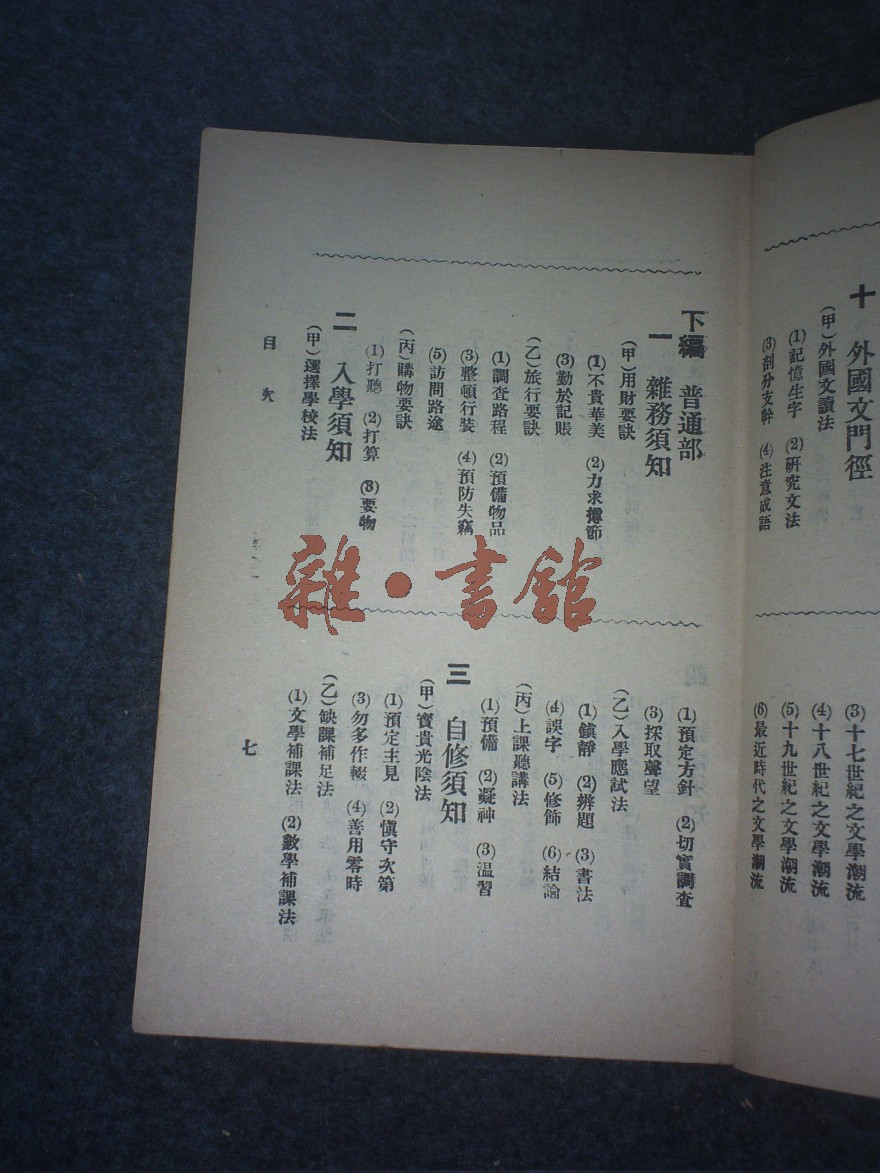 十　外國文門徑
（甲）外國文讀法
(1)記憶生字　(2)研究文法
(3)剖分支幹　(4)注意成語
(3)十七世紀之文學潮流
(4)十八世紀之文學潮流
(5)十九世紀之文學潮流
(6)最近時代之文學潮流
下編　普通部
一　雜務須知
（甲）用財要訣
(1)不貴華美　(2)力求撙節
(3)勤於記賬
（乙）旅行要訣
(1)調查路程　(2)預備物品
(3)整頓行裝　(4)預防失竊
(5)訪問路途
（丙）購物要訣
(1)打聽　(2)打算　(3)要物
二　入學須知
（甲）選擇學校法
(1)預定方針　(2)切實調查
(3)採取聲望
（乙）入學應試法
(1)鎮靜　(2)辨題　(3)書法
(4)誤字　(5)修飾　(6)結論
（丙）上課聽講法
(1)預備　(2)凝神　(3)温習
三　自修須知
（甲）寶貴光陰法
(1)預定主見　(2)慎守次第
(3)勿多作輟　(4)善用零時
（乙）缺課補足法
(1)文學補課法　(2)數學補課法
目次
七
雜·書館